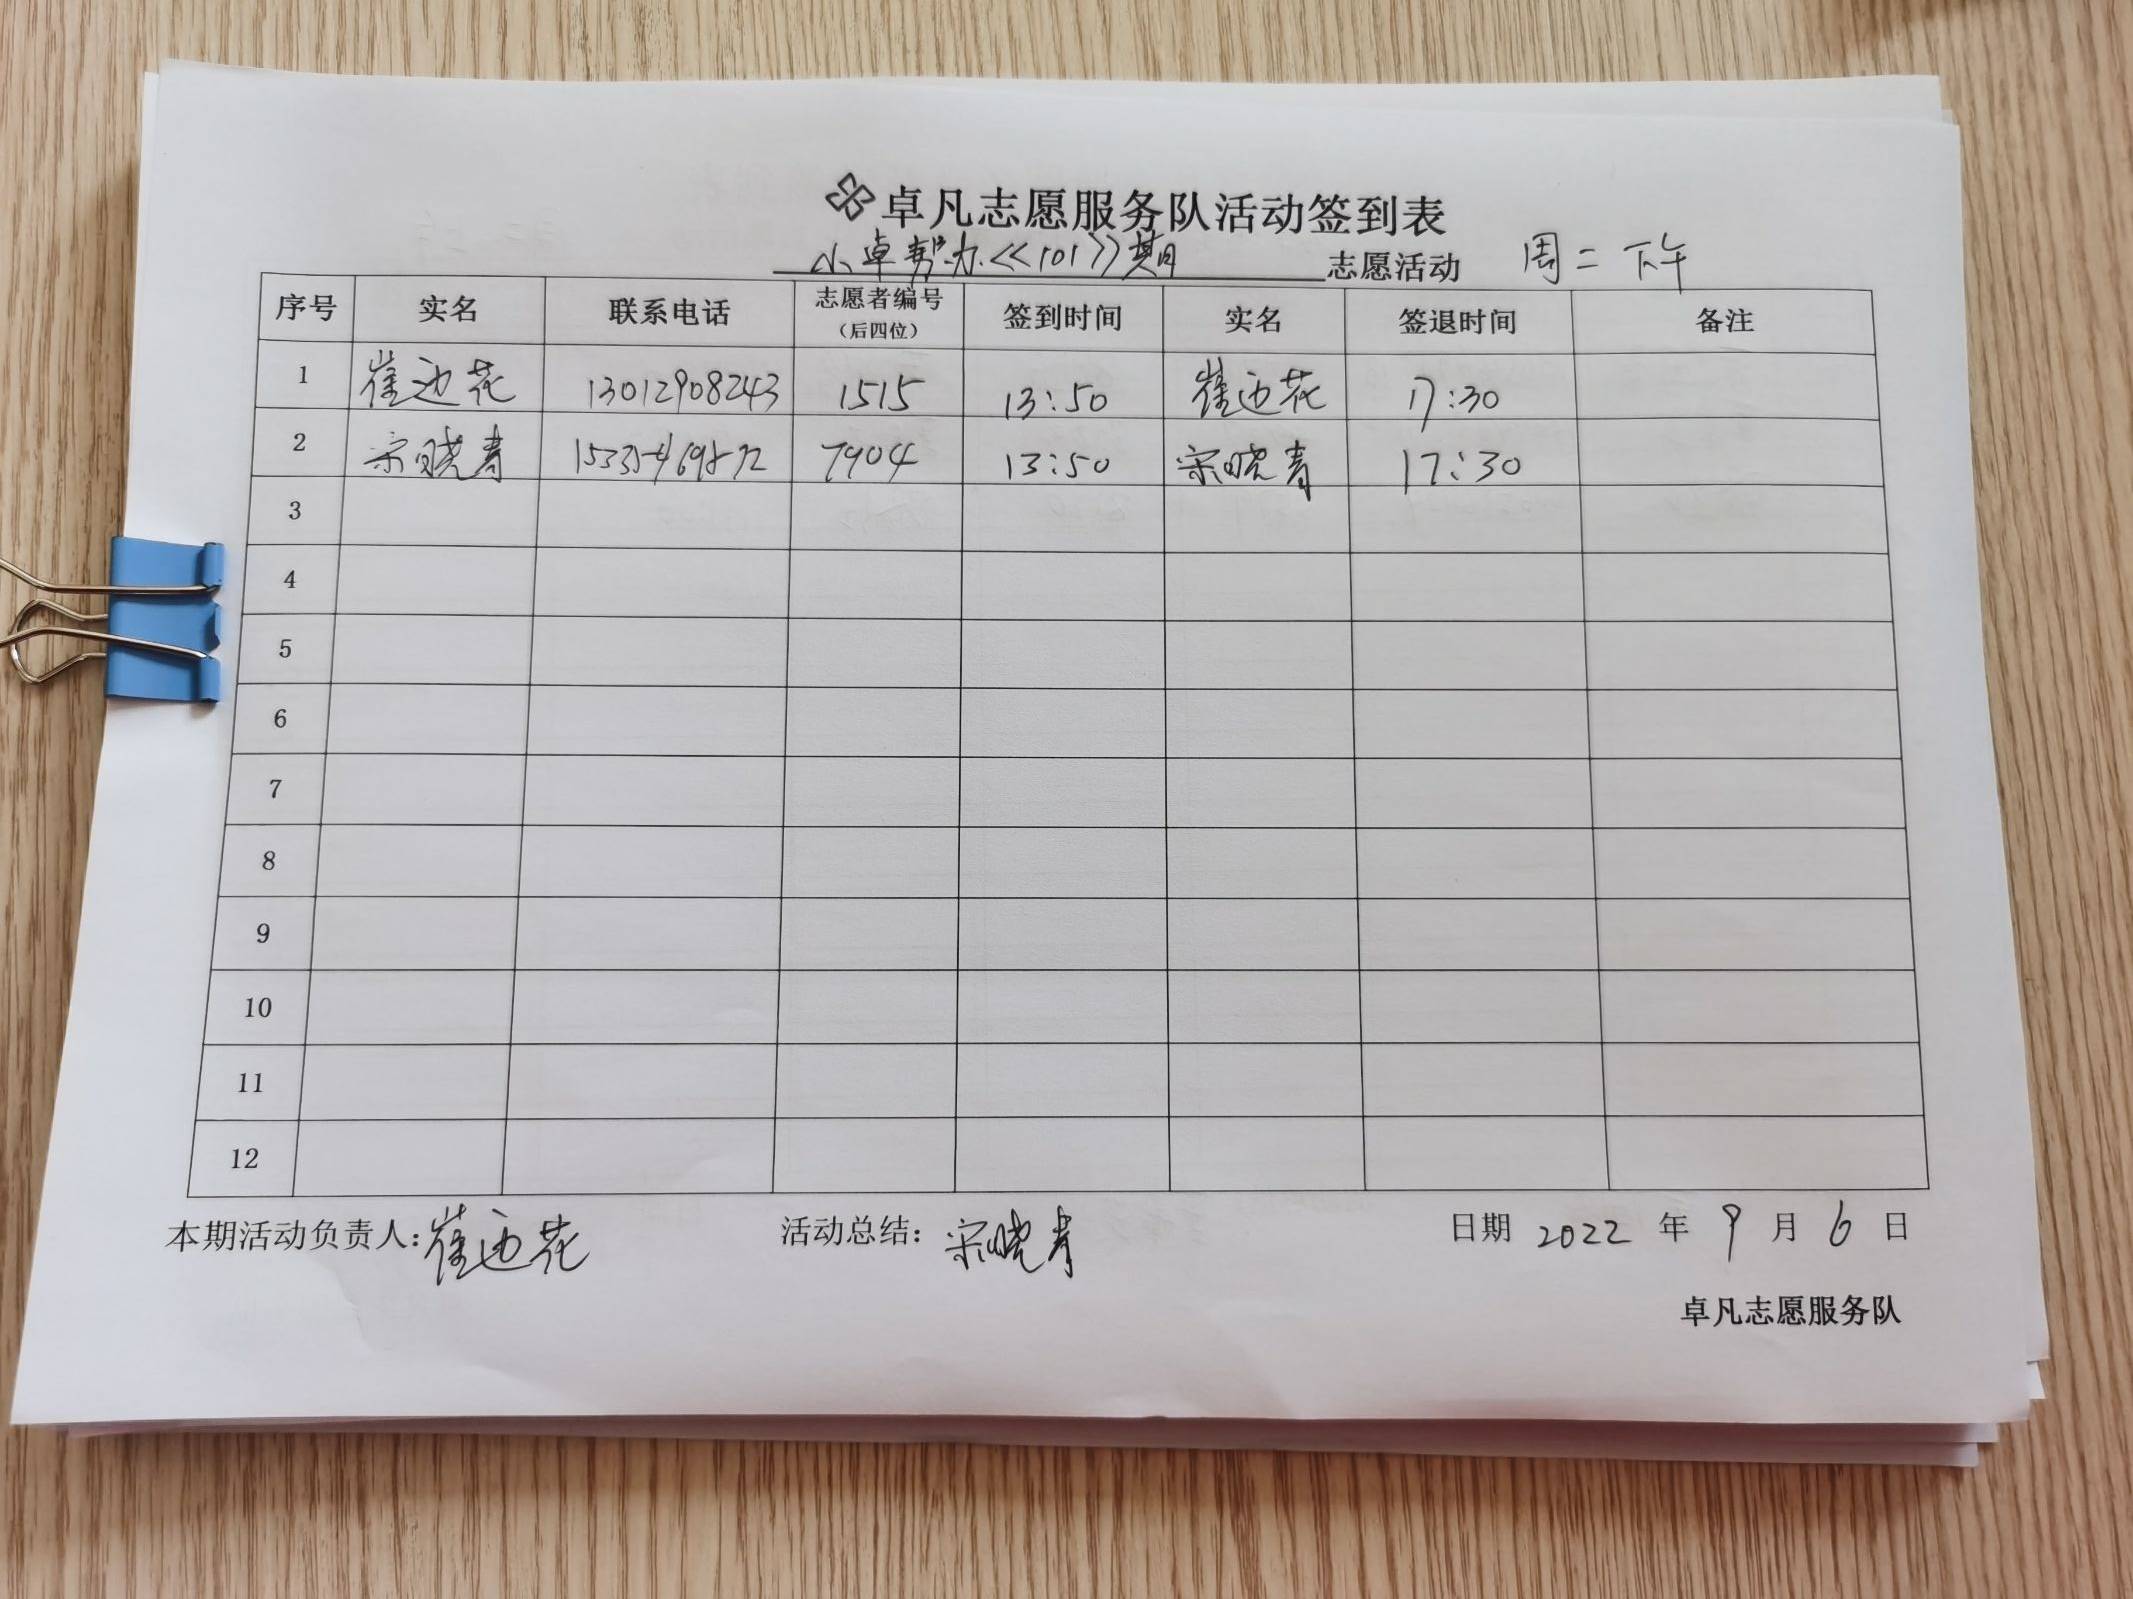 卓凡志愿服务队活动签到表
小卓帮办《101》期 志愿活动 周二下午
序号 实名 联系电话 志愿者编号（后四位） 签到时间 实名 签退时间 备注
1 崔迎花 13012908243 1515 13:50 崔迎花 17:30
2 宋晓青 7904 13:50 宋晓青 17:30
3
4
5
6
7
8
9
10
11
12
本期活动负责人：崔迎花 活动总结：宋晓青 日期 2022 年 9 月 6 日
卓凡志愿服务队